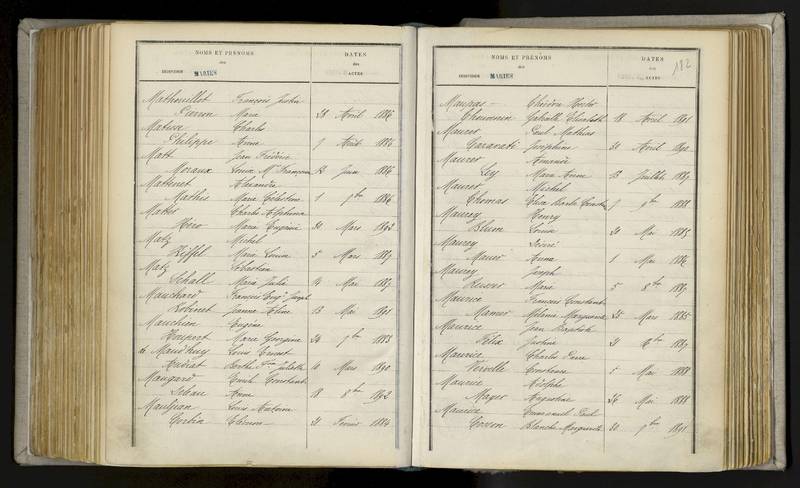 NOMS ET PRÉNOMS
des
MARIÉS
DATES
des
ACTES
Mathouillot François Justin
Pierron Marie 28 Avril 1886
Matuse Charles
Philippe Anne 7 Août 1886
Matt Jean Frédéric
Moraux Louise Mie Françoise Juin 1886
Mattenet Alexandre
Mathis Marie Célestine 1 7bre 1886
Mattos Charles Alphonse
Hero Marie Eugénie 30 Mars 1892
Matz Michel
Kiffel Marie Louise 5 Mars 1889
Matz Sébastien
Schall Marie Julie 14 Mai 1887
Mauchard François Eugne Joseph
Robinet Jeanne Aline 13 Mai 1891
Mauchien Eugène
Houpert Marie Georgine 24 7bre 1883
de Maudhuy Louis Ernest
Audiat Berthe Juliette 10 Mars 1890
Maugard Emile Constant
Leban Anne 18 8bre 1892
Mauljean Louis Antoine
Corbin Clarisse 21 Février 1884
NOMS ET PRÉNOMS
des
MARIÉS
DATES
des
ACTES
182
Maupas
Chouanin Gabrielle Elisabeth 18 Avril 1891
Maurer Paul Mathias
Garavati Joséphine 21 Avril 1890
Maurer Amandé
Ley Marie Anne 23 Juillet 1887
Maurer Michel
Thomas Elisa 7 9bre 1888
Maurey Henry
Blum Louise 21 Mai 1885
Maurey
Anna 1 Mai 1886
Maurey Joseph
Marie 5 8bre 1887
Maurice François Constant
Mamer Mélanie Marguerite 25 Mars 1885
Maurice Jean Baptiste
Félix Justine 21 Xbre 1889
Maurice Charles Pierre
Verville Constance 5 Mai 1888
Maurice Adolphe
Mayer Augustine 26 Mai 1888
Maurice Emmanuel Paul
Cosson Blanche Marguerite 30 9bre 1891